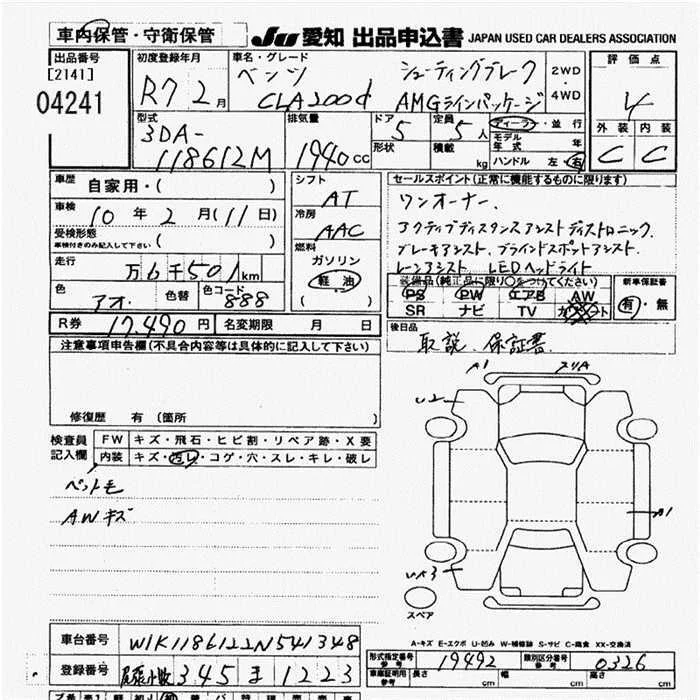 車内保管・守衛保管
JU 愛知 出品申込書 JAPAN USED CAR DEALERS ASSOCIATION
出品番号
[2141]
04241
初度登録年月
R7 2月
車名・グレード
ベンツ シューティングブレーク
CLA200d AMGラインパッケージ
2WD
4WD
評価点
4
外装 内装
C C
型式
3DA-
118612M
排気量
1940cc
ドア 5
形状
定員 5人
積載 kg
ディーラー・並行
モデル年式 年
ハンドル 左・右
車歴 自家用・( )
車検 10年2月(11日)
受検形態
車検付きのみ記入して下さい ( )
走行 万6千501km
色 アオ 色替 色コード 888
R券 17,490円 名変期限 月 日
シフト
AT
冷房
AAC
燃料
ガソリン
軽油
( )
セールスポイント(正常に機能するものに限ります)
ワンオーナー、
アクティブディスタンスアシストディストロニック、
ブレーキアシスト、ブラインドスポットアシスト、
レーンアシスト LEDヘッドライト
装備品(純正品に限り○をつけてください)
PS PW エアB AW
SR ナビ TV
新車保証書
有・無
後日品
取説、保証書
注意事項申告欄(不具合内容等は具体的に記入して下さい)
修復歴 有(箇所 )
検査員記入欄
FW キズ・飛石・ヒビ割・リペア跡・X要
内装 キズ・汚レ・コゲ・穴・スレ・キレ・破レ
ペット毛
AWキズ
A1 スリA
U2
A1
UX3
スペア
A-キズ E-エクボ U-凹み W-補修跡 S-サビ C-腐食 XX-交換済
車台番号 W1K1186122N541348
登録番号 尾張小牧 345 ま 1223
型式指定番号 参考 19492 類別区分番号 参考 0326
車庫証明用 参考 長さ cm 幅 cm 高さ cm